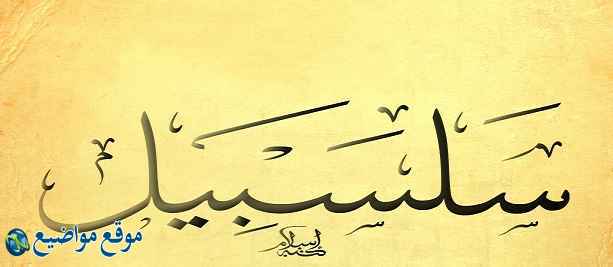 سَلسَبِيل
كتبه إسلام
موقع مواضيع